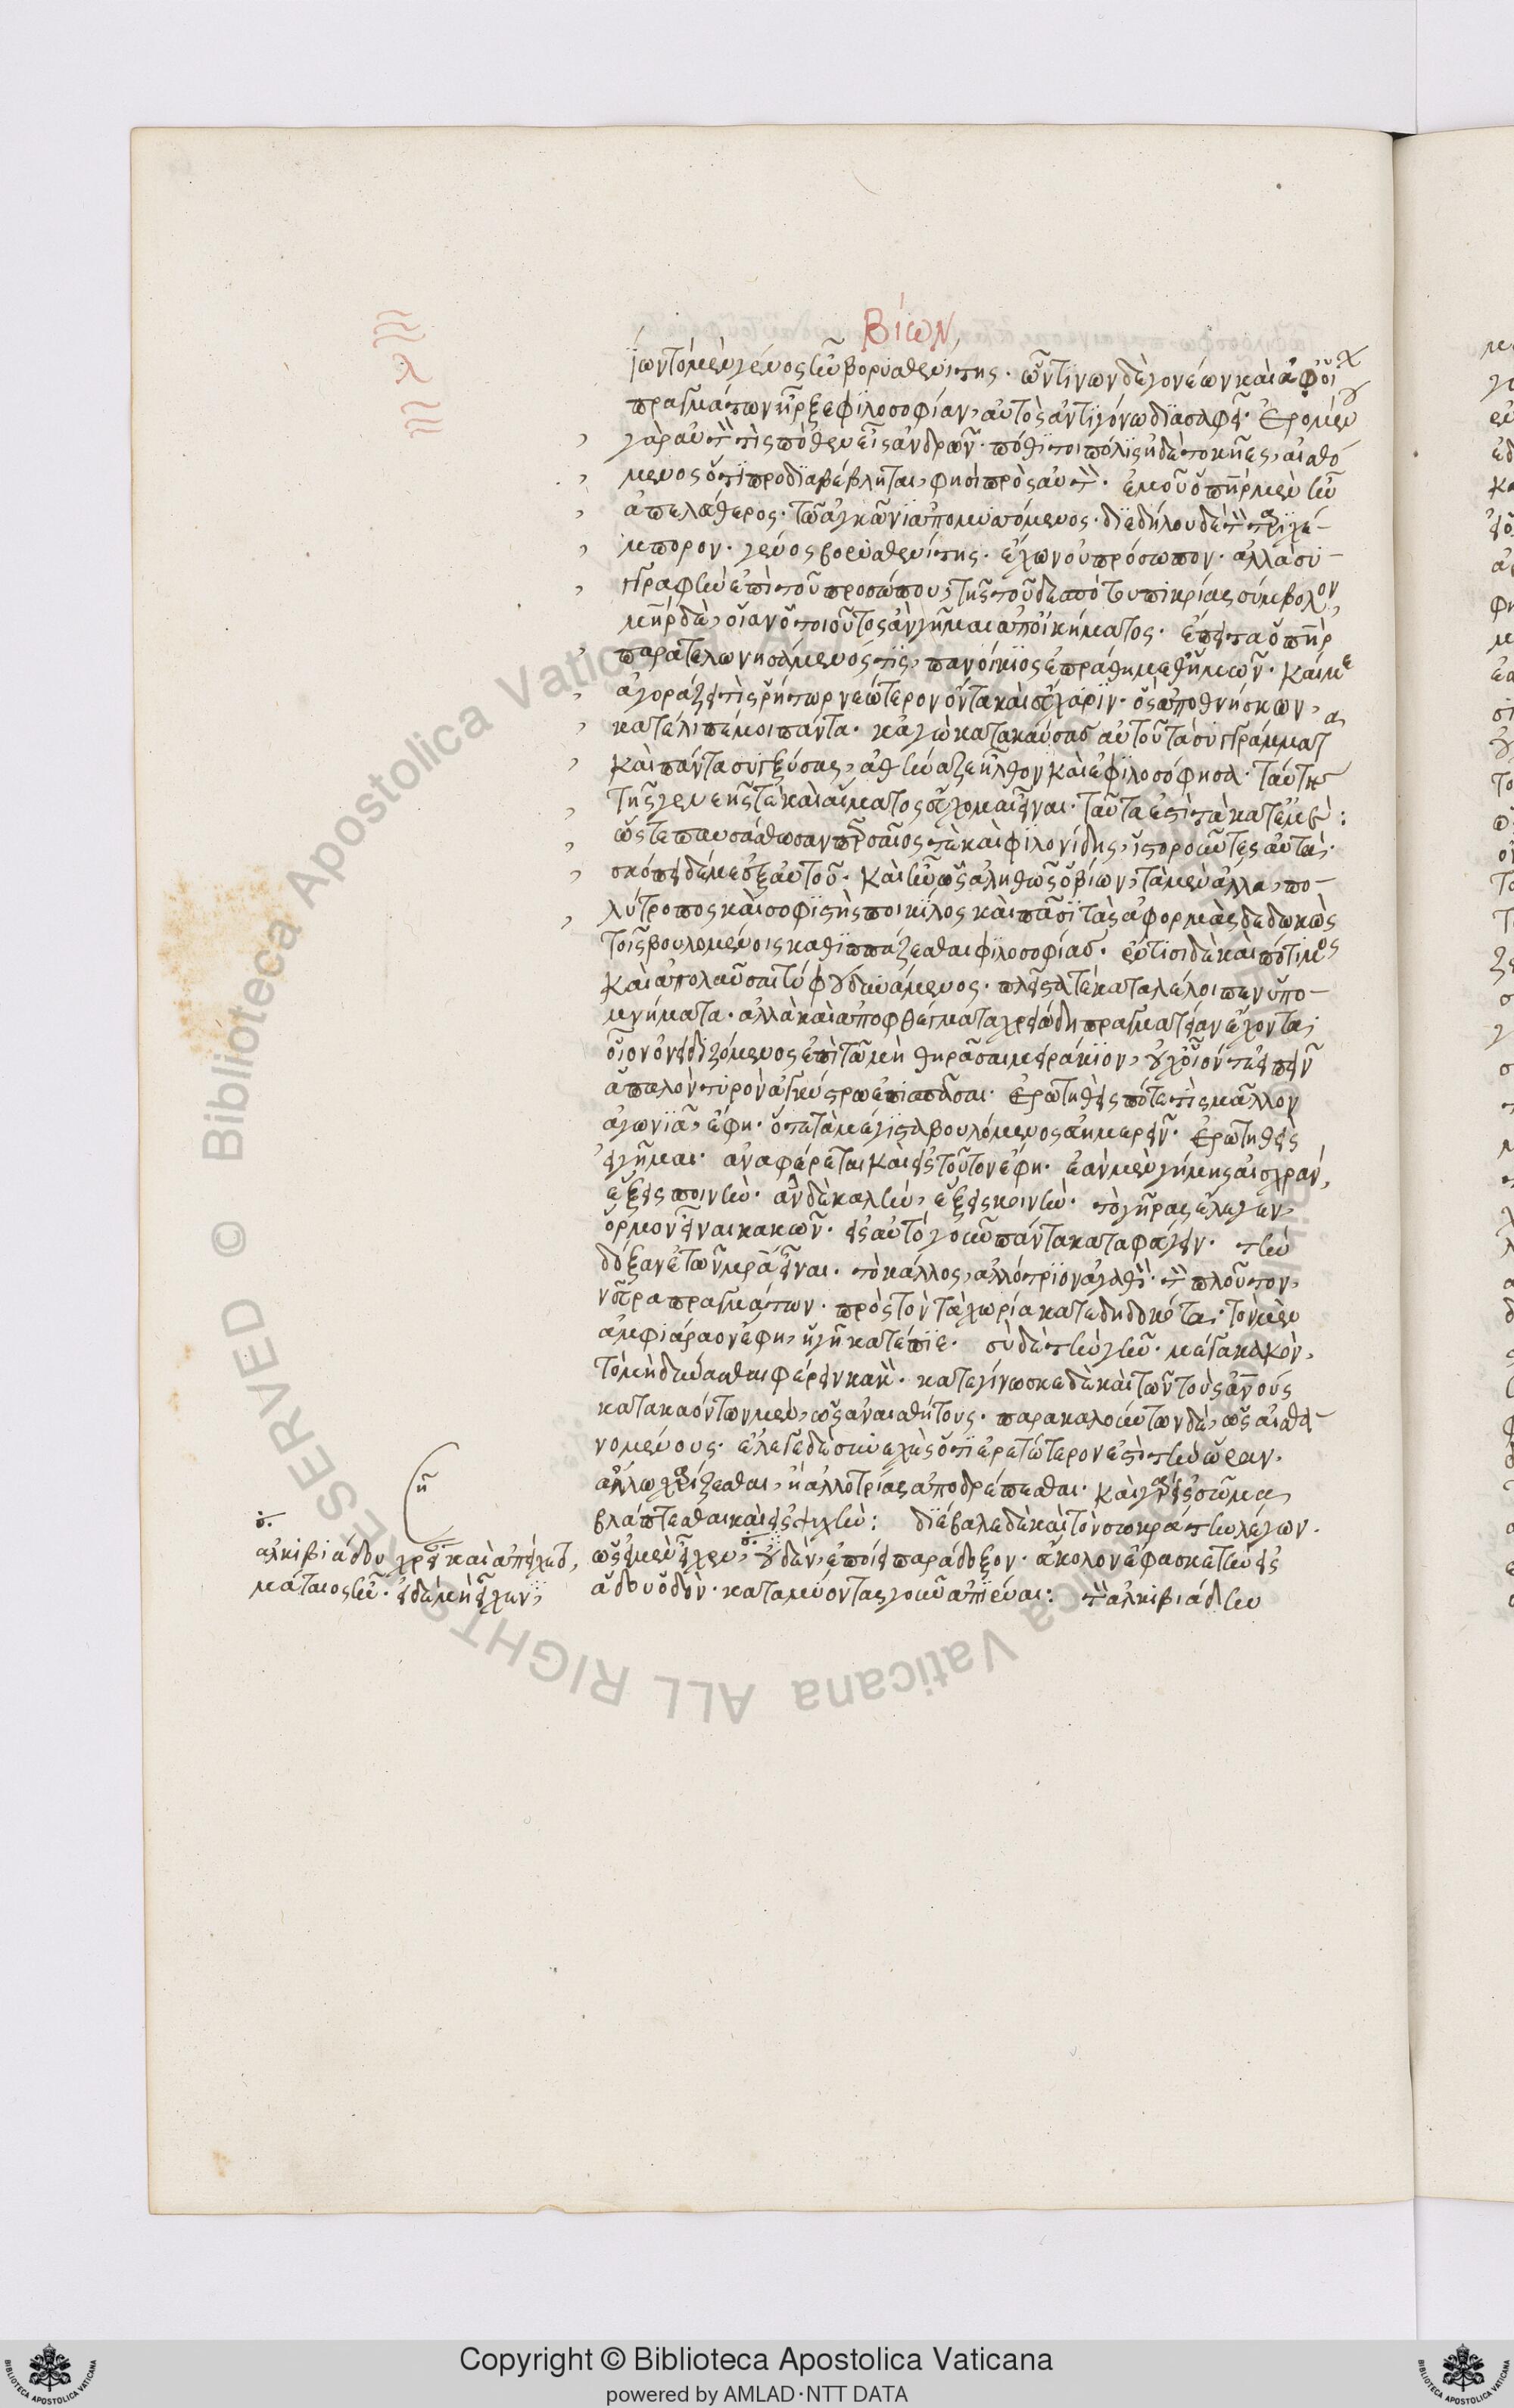 Βίων
ΐων τὸ μὲν γένος ἦν βορυσθενίτης. ὧν τινων δὲ γονέων καὶ ἀφ' οἵ
πραγμάτων ἦρξε φιλοσοφίαν, αὐτὸς ἀντιγόνω διασαφεῖ. ἐρομέν
γὰρ αὐτὸν τίς πόθεν εἶς ἀνδρῶν. πόθι τοι πόλις ἠδὲ τοκῆες, αἰσθό
μενος ὅτι προδιαβέβληται, φησὶ πρὸς αὐτόν. ἐμοῦ ὁ πατὴρ μὲν ἦν
ἀπελεύθερος. τῶ ἀγκῶνι ἀπομυσσόμενος. διεδήλου δὲ τὸν ταριχέ-
μπορον. γένος βορυσθενίτης. ἔχων οὐ πρόσωπον. ἀλλὰ συ-
γγραφὴν ἐπὶ τοῦ προσώπου, τῆς τοῦ δεσπότου πικρίας σύμβολον,
μήτηρ δὲ, οἵαν ὁ τοιοῦτος ἂν γῆμαι ἀπ' οἰκήματος. ἔπειτα ὁ πατὴρ
παρατελωνησάμενός τις, πανοίκιος ἐπράθη μεθ' ἡμῶν. καί με
ἀγοράζει τὶς ῥήτωρ νεώτερον ὄντα καὶ εὔχαριν. ὃς ἀποθνήσκων,
κατέλιπέ μοι πάντα. κἀγὼ κατακαύσας αὐτοῦ τὰ συγγράμματα
καὶ πάντα συγξύσας, ἀθήναζε ἦλθον καὶ ἐφιλοσόφησα. ταύτης
τῆς γενεῆς τε καὶ αἵματος εὔχομαι εἶναι. ταῦτα ἐστὶ τὰ κατ' ἐμέ:
ὥστε παυσάσθωσαν περσαῖος τὲ καὶ φιλονίδης, ἱστοροῦντες αὐτά.
σκόπει δέ με ἐξ αὐτοῦ. καὶ ἦν ὡς ἀληθῶς ὁ βίων, τὰ μὲν ἄλλα, πο-
λύτροπος καὶ σοφιστὴς ποικίλος καὶ πᾶσι τὰς ἀφορμὰς δεδωκὼς
τοῖς βουλομένοις καθιππάζεσθαι φιλοσοφίας. ἔν τισι δὲ καὶ πότιμος
καὶ ἀπολαῦσαι τύφου δυνάμενος. πλεῖστά τε καταλέλοιπεν ὑπο-
μνήματα. ἀλλὰ καὶ ἀποφθέγματα χρειώδη πραγματείαν ἔχοντα.
οἷον ὀνειδιζόμενος ἐπὶ τῶ μὴ θηρᾶσαι μειράκιον, οὐχ οἷόν τε εἶπεν
ἁπαλὸν τυρὸν ἀγκίστρω ἐπισπᾶσαι. ἐρωτηθείς ποτε τίς μᾶλλον
ἀγωνιᾶ, ἔφη. ὁ τὰ μέγιστα βουλόμενος εὐημερεῖν. ἐρωτηθεὶς
εἰ γῆμαι. ἀναφέρεται καὶ εἰς τοῦτον ἔφη. ἐὰν μὲν γήμης αἰσχράν,
ἕξεις ποινήν. ἂν δὲ καλὴν, ἕξεις κοινήν. τὸ γῆρας ἔλεγεν,
ὅρμον εἶναι κακῶν. εἰς αὐτό γοῦν πάντα καταφεύγειν. τὴν
δόξαν ἐτῶν μητέρα εἶναι. τὸ κάλλος, ἀλλότριον ἀγαθόν. τὸν πλοῦτον,
νεῦρα πραγμάτων. πρὸς τὸν τὰ χωρία κατεδηδοκότα. τὸν μὲν
ἀμφιάραον ἔφη, ἡ γῆ κατέπιε. σὺ δὲ τὴν γῆν. μέγα κακὸν,
τὸ μὴ δύνασθαι φέρειν κακόν. κατεγίνωσκε δὲ καὶ τῶν τοὺς ἀνθρώπους
κατακαόντων μὲν, ὡς ἀναισθήτους. παρακαλούντων δὲ, ὡς αἰσθα-
νομένους. ἔλεγε δὲ συνεχὲς ὅτι ἐρετώτερον ἐστὶ τὴν ὥραν.
ἄλλω χαρίζεσθαι, ἢ ἀλλοτρίας ἀποδρέπεσθαι. καὶ γὰρ εἰς σῶμα
βλάπτεσθαι καὶ εἰς ψυχήν: διέβαλε δὲ καὶ τὸν σωκράτην λέγων.
ὡς εἰ μὲν εἶχεν, οὐδὲν, ἐποίει παράδοξον. εὔκολον ἔφασκε τὴν εἰς
ἅδου ὁδόν. καταμύοντας γοῦν ἀπιέναι: τὸν ἀλκιβιάδην
ἀλκιβιάδου χρείαν καὶ ἀπείχετο,
μάταιος ἦν. εἰ δὲ μὴ εἶχεν,